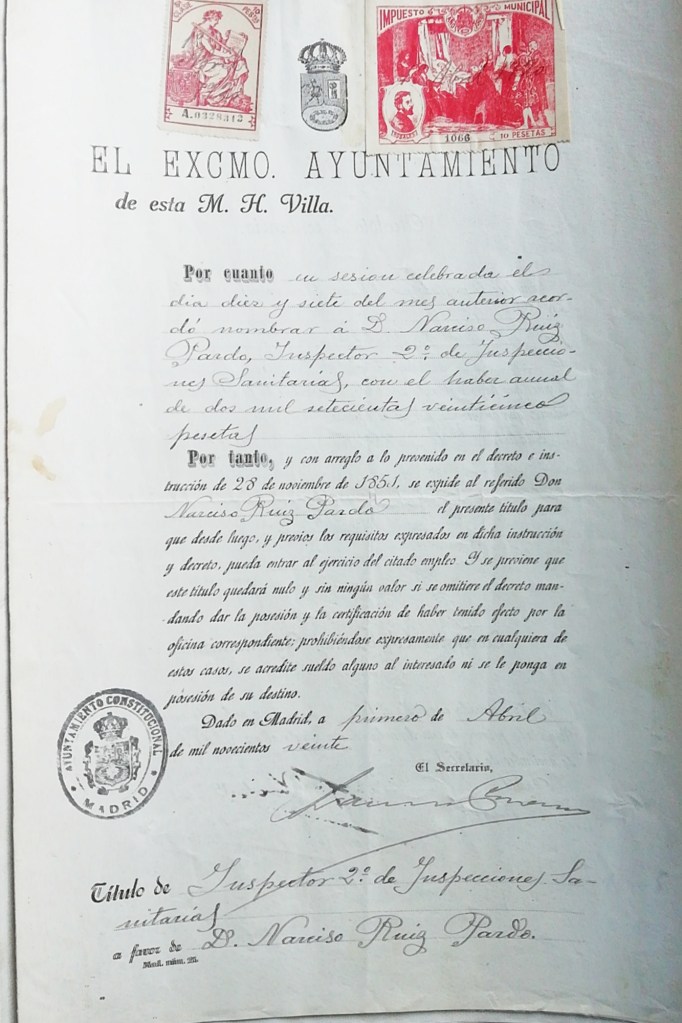 A.0328312
IMPUESTO MUNICIPAL
1066
10 PESETAS
EL EXCMO. AYUNTAMIENTO
de esta M. H. Villa.
Por cuanto en sesion celebrada el
dia diez y siete del mes anterior acor-
dó nombrar á D. Narciso Ruiz
Pardo, Inspector 2º de Inspeccio-
nes Sanitarias, con el haber anual
de dos mil setecientas veinticinco
pesetas
Por tanto, y con arreglo a lo prevenido en el decreto e ins-
trucción de 28 de noviembre de 1851, se expide al referido Don
Narciso Ruiz Pardo el presente título para
que desde luego, y previos los requisitos expresados en dicha instrucción
y decreto, pueda entrar al ejercicio del citado empleo. Y se previene que
este título quedará nulo y sin ningún valor si se omitiere el decreto man-
dando dar la posesión y la certificación de haber tenido efecto por la
oficina correspondiente; prohibiéndose expresamente que en cualquiera de
estos casos, se acredite sueldo alguno al interesado ni se le ponga en
posesión de su destino.
Dado en Madrid, a primero de Abril
de mil novecientos veinte
El Secretario,
AYUNTAMIENTO CONSTITUCIONAL
MADRID
Título de Inspector 2º de Inspecciones Sa-
nitarias
a favor de D. Narciso Ruiz Pardo.
Mod. núm. 25.